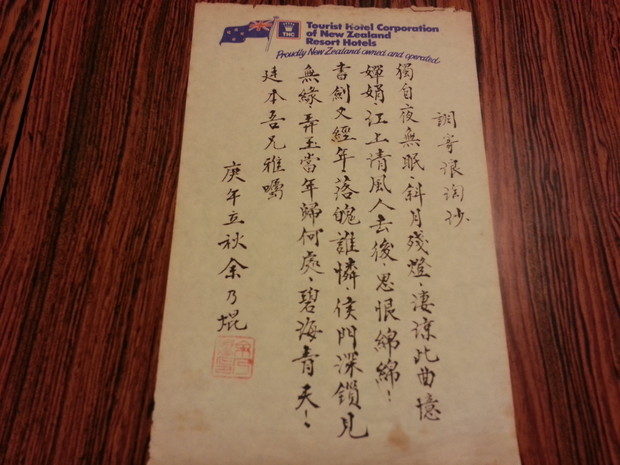 THC
Tourist Hotel Corporation
of New Zealand
Resort Hotels
Proudly New Zealand owned and operated
調寄浪淘沙
獨自夜無眠、斜月殘燈、淒涼此曲憶
嬋娟、江上清風人去後、思恨綿綿！
書劍又經年、落魄誰憐、侯門深鎖見
無緣、弄玉當年歸何處、碧海青天！
廷本吾兄雅囑
庚午立秋余乃焜